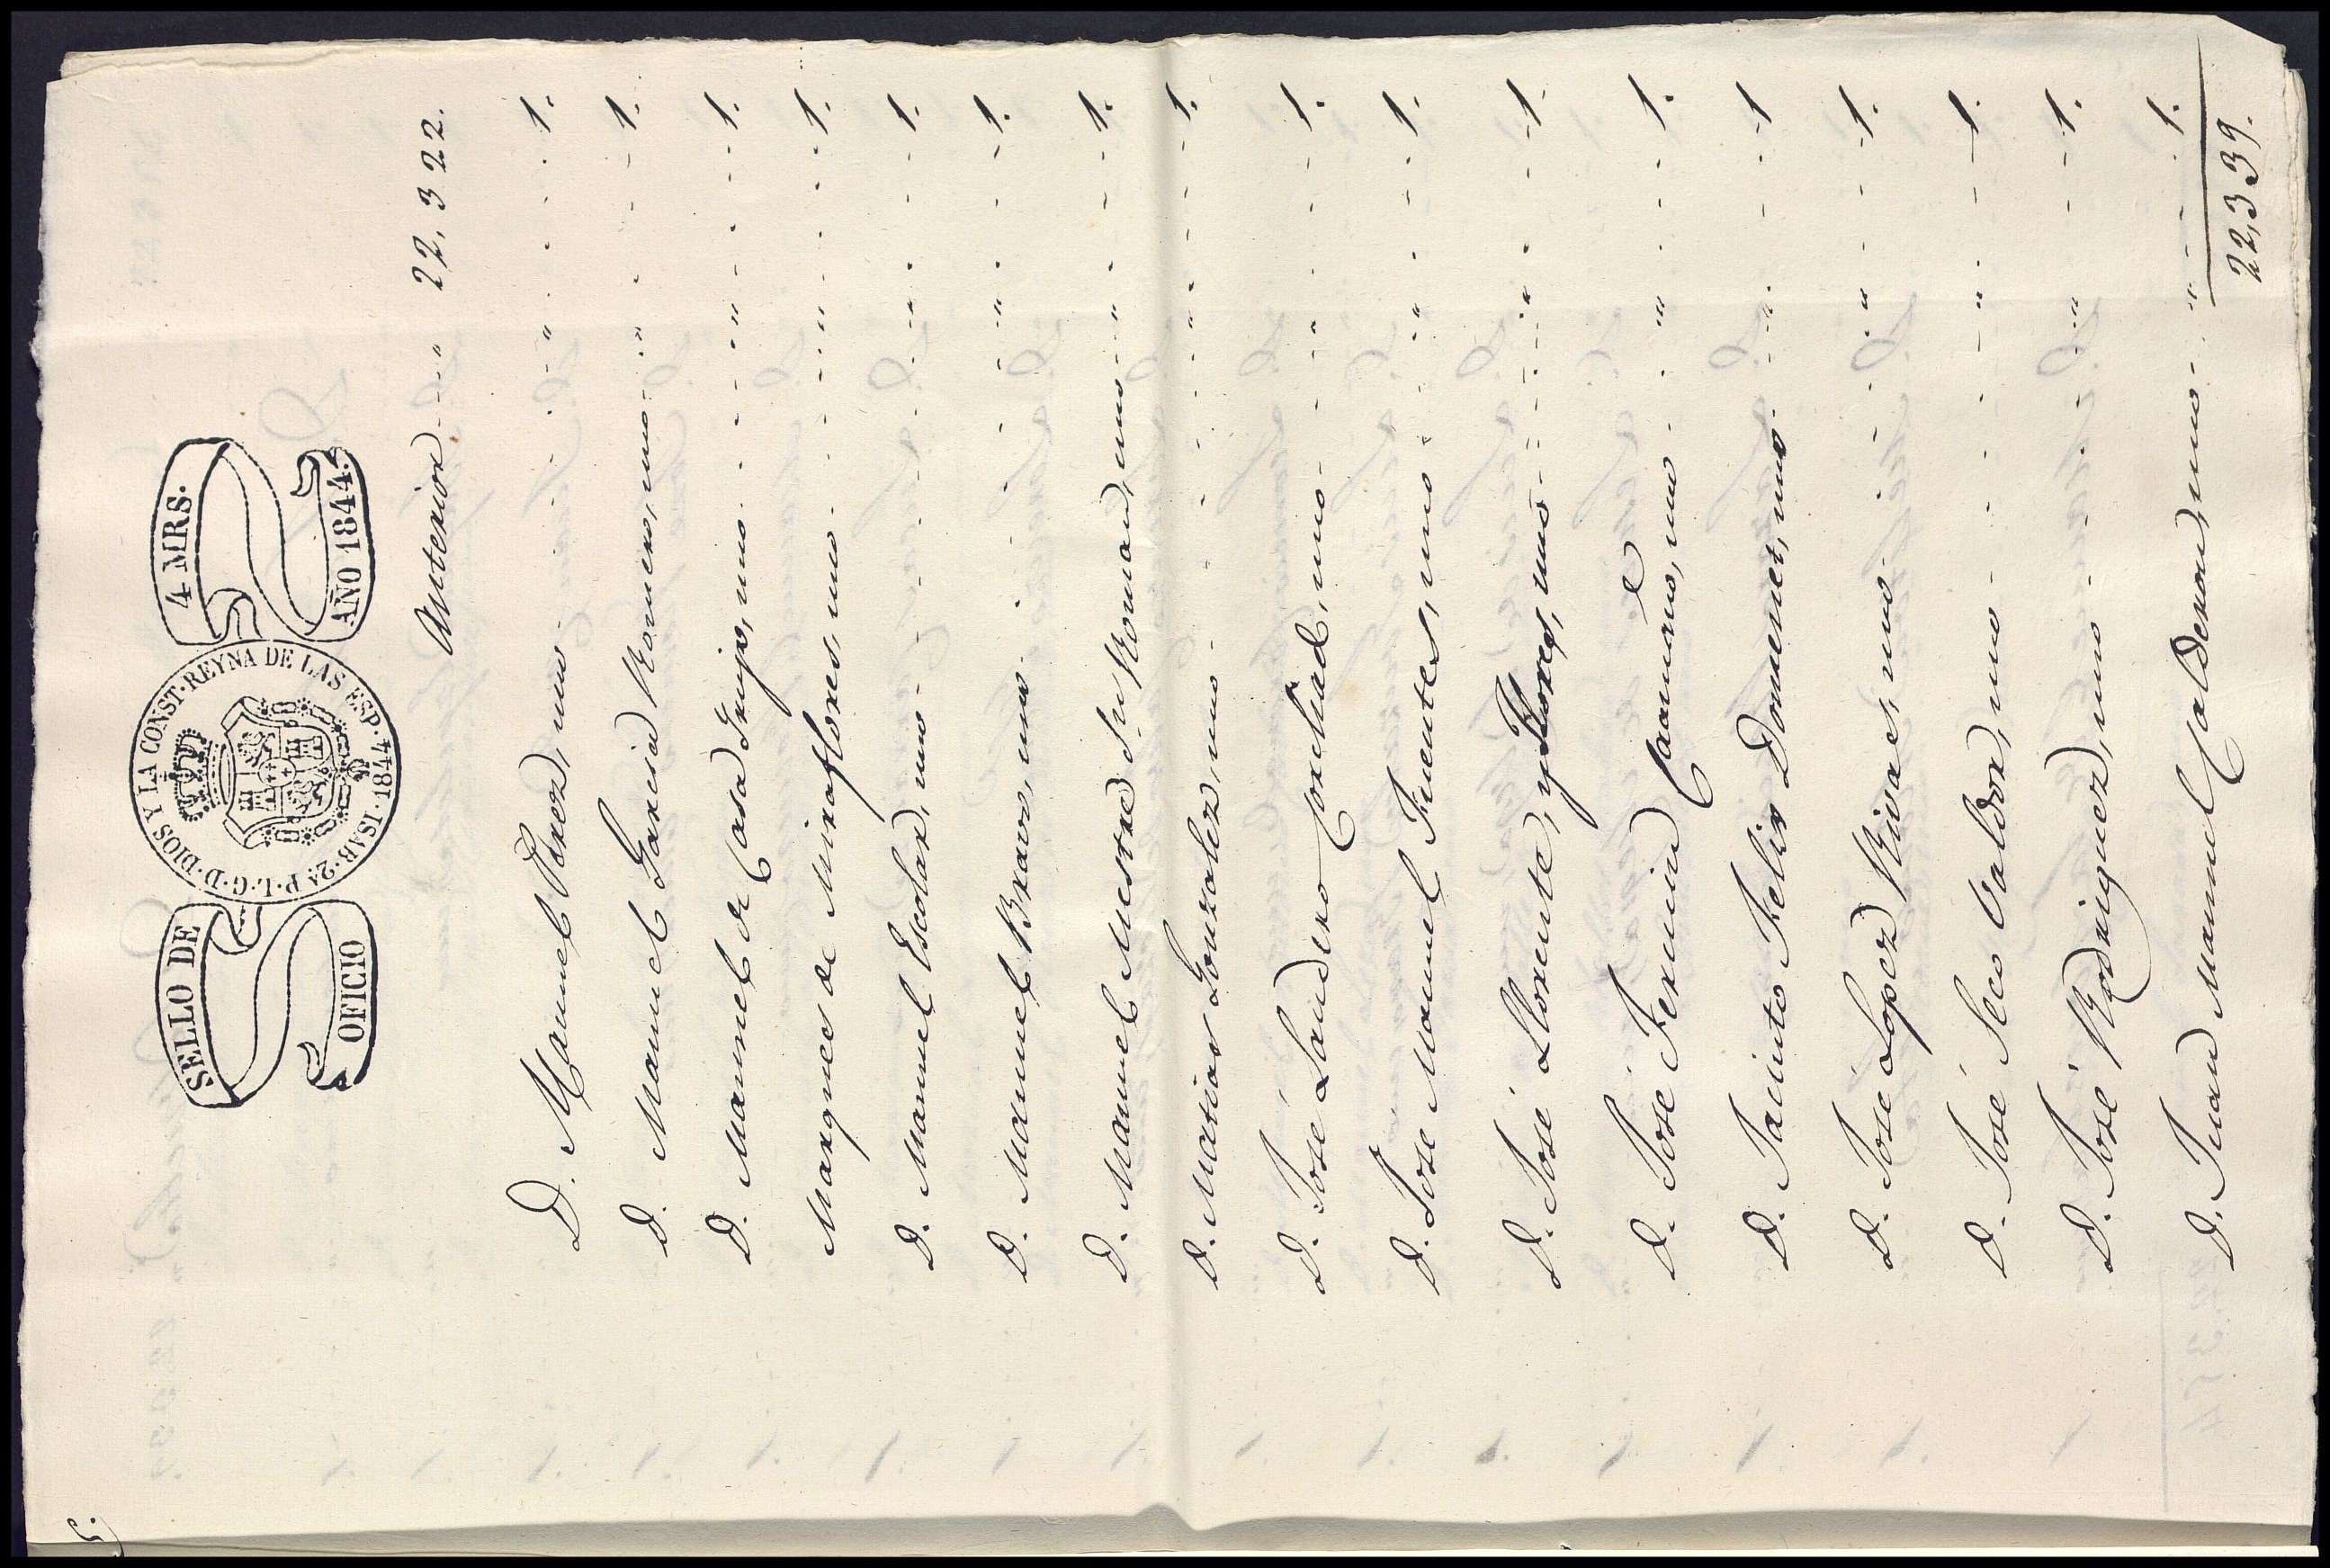 SELLO DE OFICIO
ISAB. 2ª P.L.G.D.DIOS Y LA CONST. REYNA DE LAS ESP. 1844.
4 MRS. AÑO 1844.
Anterior --- " 22,322.
D. Manuel Perez, uno - - - " - - - 1.
D. Manuel Garcia Romero, uno - - " - - - 1.
D. Manuel de Casa Irujo, uno - - - " - - - 1.
Marques de Miraflores, uno - - - " - - - 1.
D. Manuel Escolar, uno - - - " - - - 1.
D. Manuel Bravo, uno - - - " - - - 1.
D. Manuel Mestre Sn Roman, uno - - " - - - 1.
D. Matias Gonzalez, uno - - - " - - - 1.
D. José Landero Corchad, uno - - - " - - - 1.
D. Jose Manuel Fuentes, uno - - - " - - - 1.
D. José Llorente, y Flores, uno - - - " - - - 1.
D. José Fermin Caamaño, uno - - " - - - 1.
D. Jacinto Felix Domenet, uno - - " - - - 1
D. José Lopez Rivaes, uno - - - " - - - 1.
D. José Seco Valdor, uno - - - " - - - 1.
D. José Rodriguez, uno - - - " - - - 1.
D. Juan Manuel Calderon, uno - - " - - - 1.
22,339.